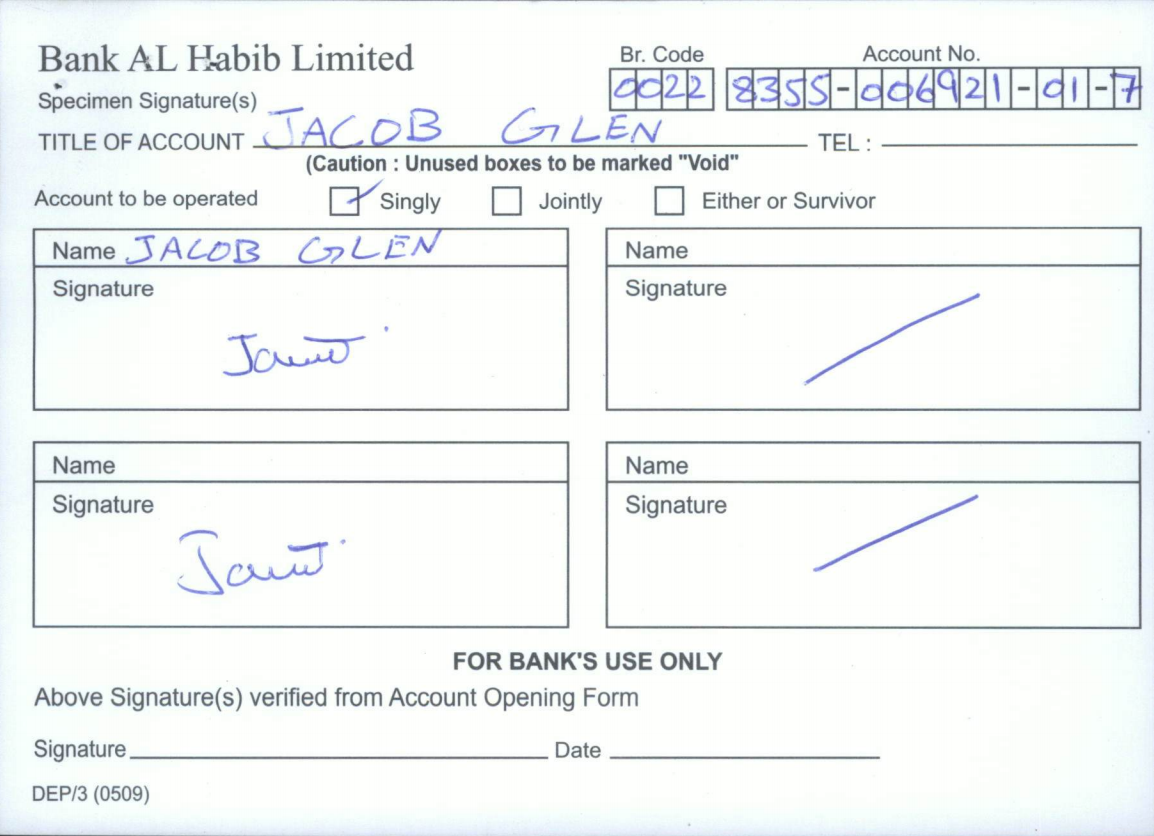 Bank AL Habib Limited
Br. Code Account No.
0022 8355-006921-01-7
Specimen Signature(s)
TITLE OF ACCOUNT JACOB GLEN TEL :
(Caution : Unused boxes to be marked "Void"
Account to be operated Singly Jointly Either or Survivor
Name JACOB GLEN
Signature
Name
Signature
Name
Signature
Name
Signature
FOR BANK'S USE ONLY
Above Signature(s) verified from Account Opening Form
Signature Date
DEP/3 (0509)